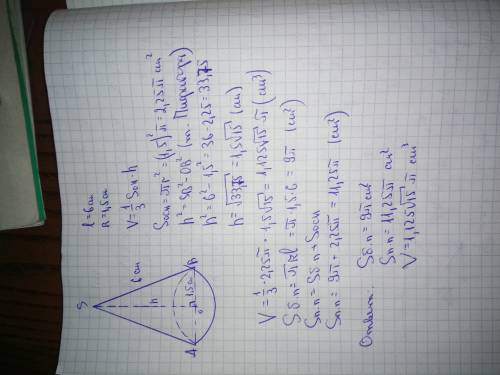 S
6 см
h
1,5 см
O
A
B
l=6 см
R=1,5 см
V=1/3 Sосн·h
Sосн=πr²=(1,5)²π=2,25π см²
h²=SB²-OB² (т. Пифагора)
h²=6²-1,5²=36-2,25=33,75
h=√33,75=1,5√15 (см)
V=1/3·2,25π·1,5√15=1,125√15 π (см³)
Sб.п=πRl=π1,5·6=9π (см²)
Sп.п=Sб.п+Sосн
Sп.п=9π+2,25π=11,25π (см²)
Ответ: Sб.п=9π см²
Sп.п=11,25π см²
V=1,125√15 π см³